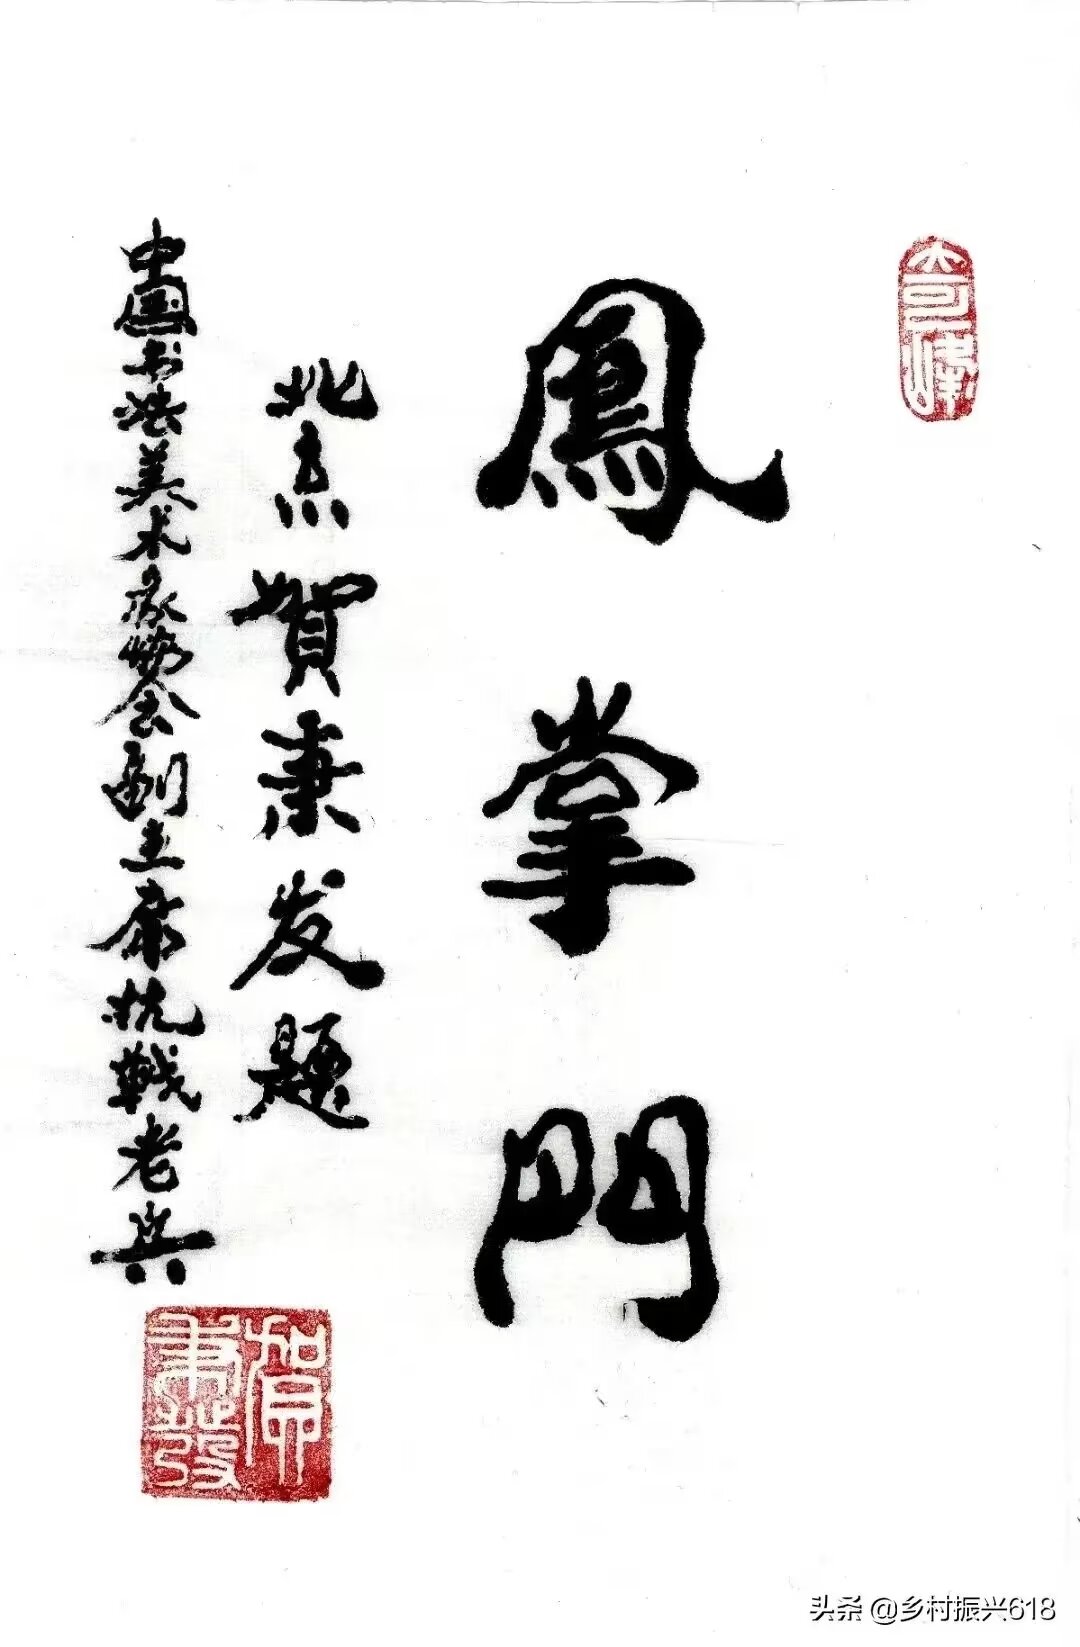 奇峰
鳳掌門
北京賀秉发題
中國书法美术家协会副主席抗戰老兵
賀秉發
头条 @乡村振兴618